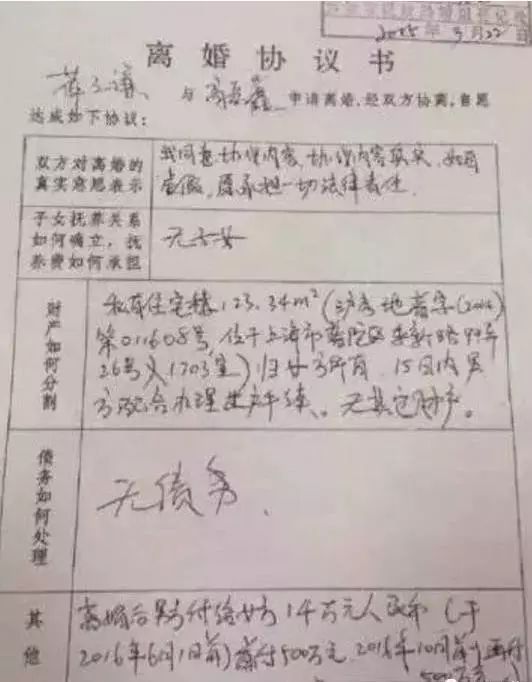 2015年3月22日
离婚协议书
薛之谦 与 高磊鑫 申请离婚,经双方协商,自愿
达成如下协议:
双方对离婚的
真实意思表示
我同意协议内容,协议内容真实,如有
虚假,愿承担一切法律责任.
子女抚养关系
如何确立,抚
养费如何承担
无子女
财产如何分割
私有住宅楼123.34m²(沪房地普字(2006)
第011608号,位于上海市普陀区
26号1703室)归女方所有,15日内男
方配合办理过户手续、无其它财产。
债务如何处理
无债务、
其他
离婚后男方付给女方1千万元人民币(于
2016年6月1日前)首付500万元,2016年10月前再付
500万元